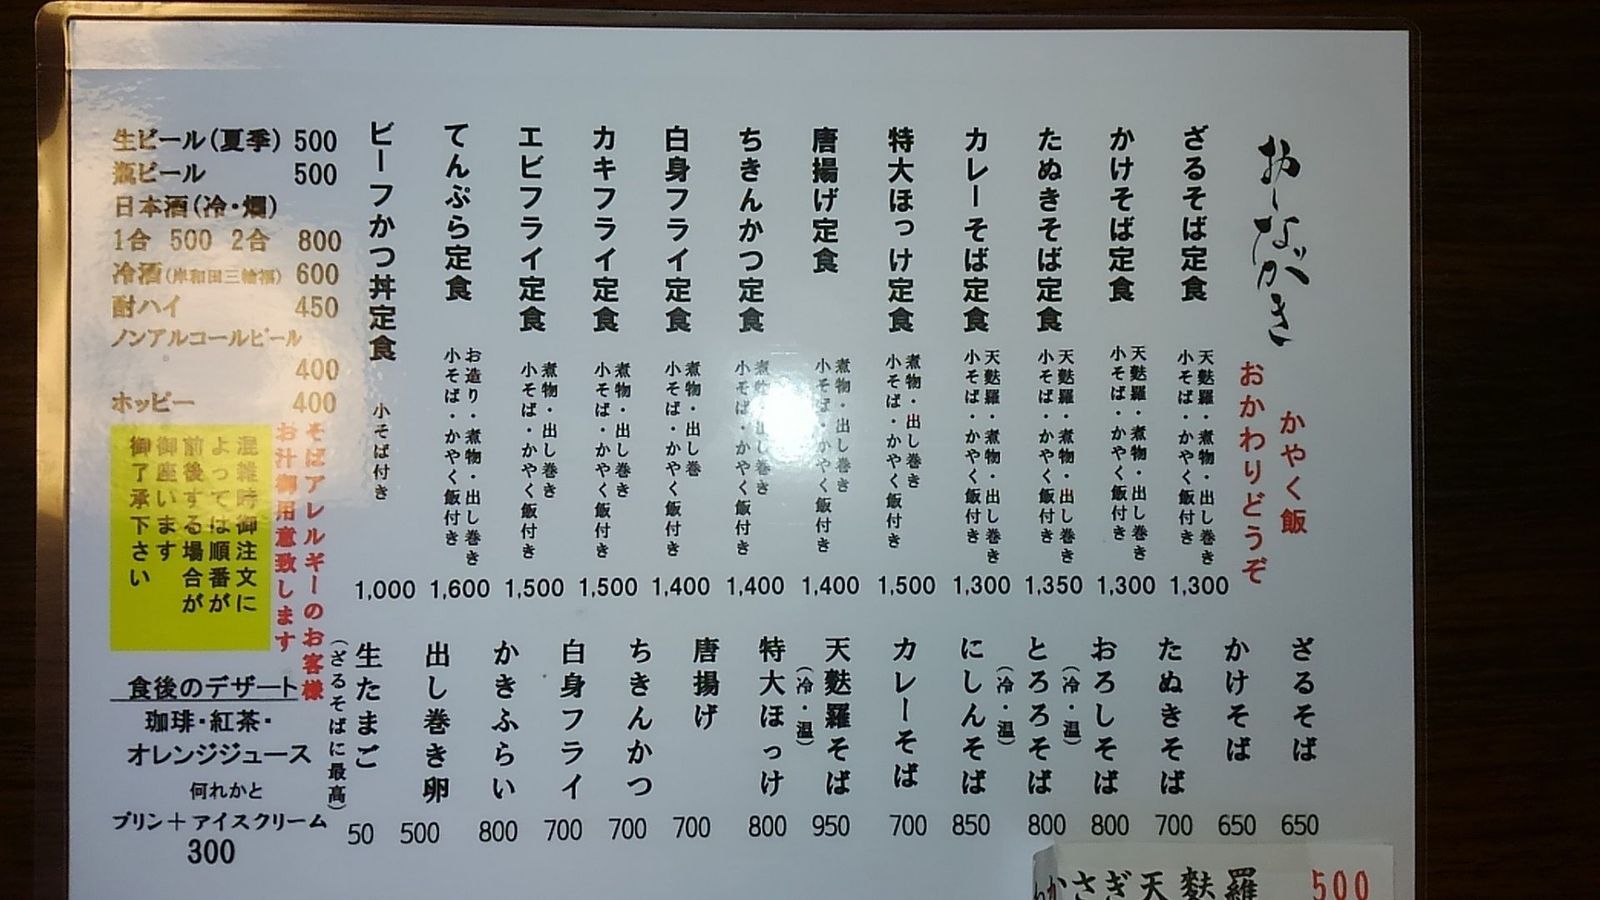 おしながき
かやく飯
おかわりどうぞ
ざるそば定食 天麩羅・煮物・出し巻き 小そば・かやく飯付き 1,300
かけそば定食 天麩羅・煮物・出し巻き 小そば・かやく飯付き 1,300
たぬきそば定食 天麩羅・煮物・出し巻き 小そば・かやく飯付き 1,350
カレーそば定食 天麩羅・煮物・出し巻き 小そば・かやく飯付き 1,300
特大ほっけ定食 煮物・出し巻き 小そば・かやく飯付き 1,500
唐揚げ定食 煮物・出し巻き 小そば・かやく飯付き 1,400
ちきんかつ定食 煮物・出し巻き 小そば・かやく飯付き 1,400
白身フライ定食 煮物・出し巻 小そば・かやく飯付き 1,400
カキフライ定食 煮物・出し巻き 小そば・かやく飯付き 1,500
エビフライ定食 煮物・出し巻き 小そば・かやく飯付き 1,500
てんぷら定食 お造り・煮物・出し巻き 小そば・かやく飯付き 1,600
ビーフかつ丼定食 小そば付き 1,000
ざるそば 650
かけそば 650
たぬきそば 700
おろしそば (冷・温) 800
とろろそば (冷・温) 800
にしんそば 850
カレーそば 700
天麩羅そば (冷・温) 950
特大ほっけ 800
唐揚げ 700
ちきんかつ 700
白身フライ 700
かきふらい 800
出し巻き卵 500
生たまご (ざるそばに最高) 50
生ビール(夏季) 500
瓶ビール 500
日本酒(冷・燗)
1合 500 2合 800
冷酒(岸和田三輪福) 600
酎ハイ 450
ノンアルコールビール
400
ホッピー 400
そばアレルギーのお客様
お汁御用意致します
混雑時御注文に
よっては順番が
前後する場合が
御座います
御了承下さい
食後のデザート
珈琲・紅茶・
オレンジジュース
何れかと
プリン＋アイスクリーム
300
わかさぎ天麩羅 500